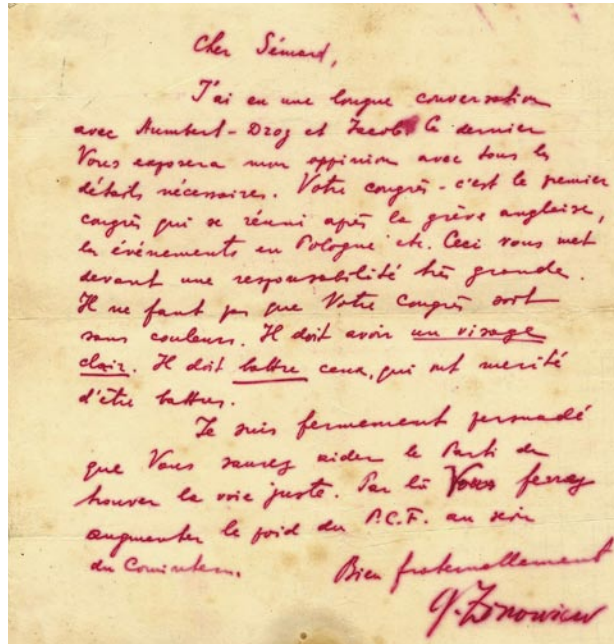 Cher Sémard,
J'ai eu une longue conversation
avec Humbert-Droz et Jacob. Ce dernier
Vous exposera mon oppinion avec tous les
détails nécessaires. Votre congrès - c'est le premier
congrès qui se réuni après la grève anglaise,
les événements en Pologne etc. Ceci vous met
devant une responsabilité très grande.
Il ne faut pas que Votre Congrès soit
sans couleurs. Il doit avoir un visage
clair. Il doit battre ceux, qui ont merité
d'être battus.
Je suis fermement persuadé
que Vous saurez aider le Parti de
trouver la voie juste. Par là Vous ferez
augmenter le poid du P.C.F. au sein
du Comintern.
Bien fraternellement
G. Zinowiew